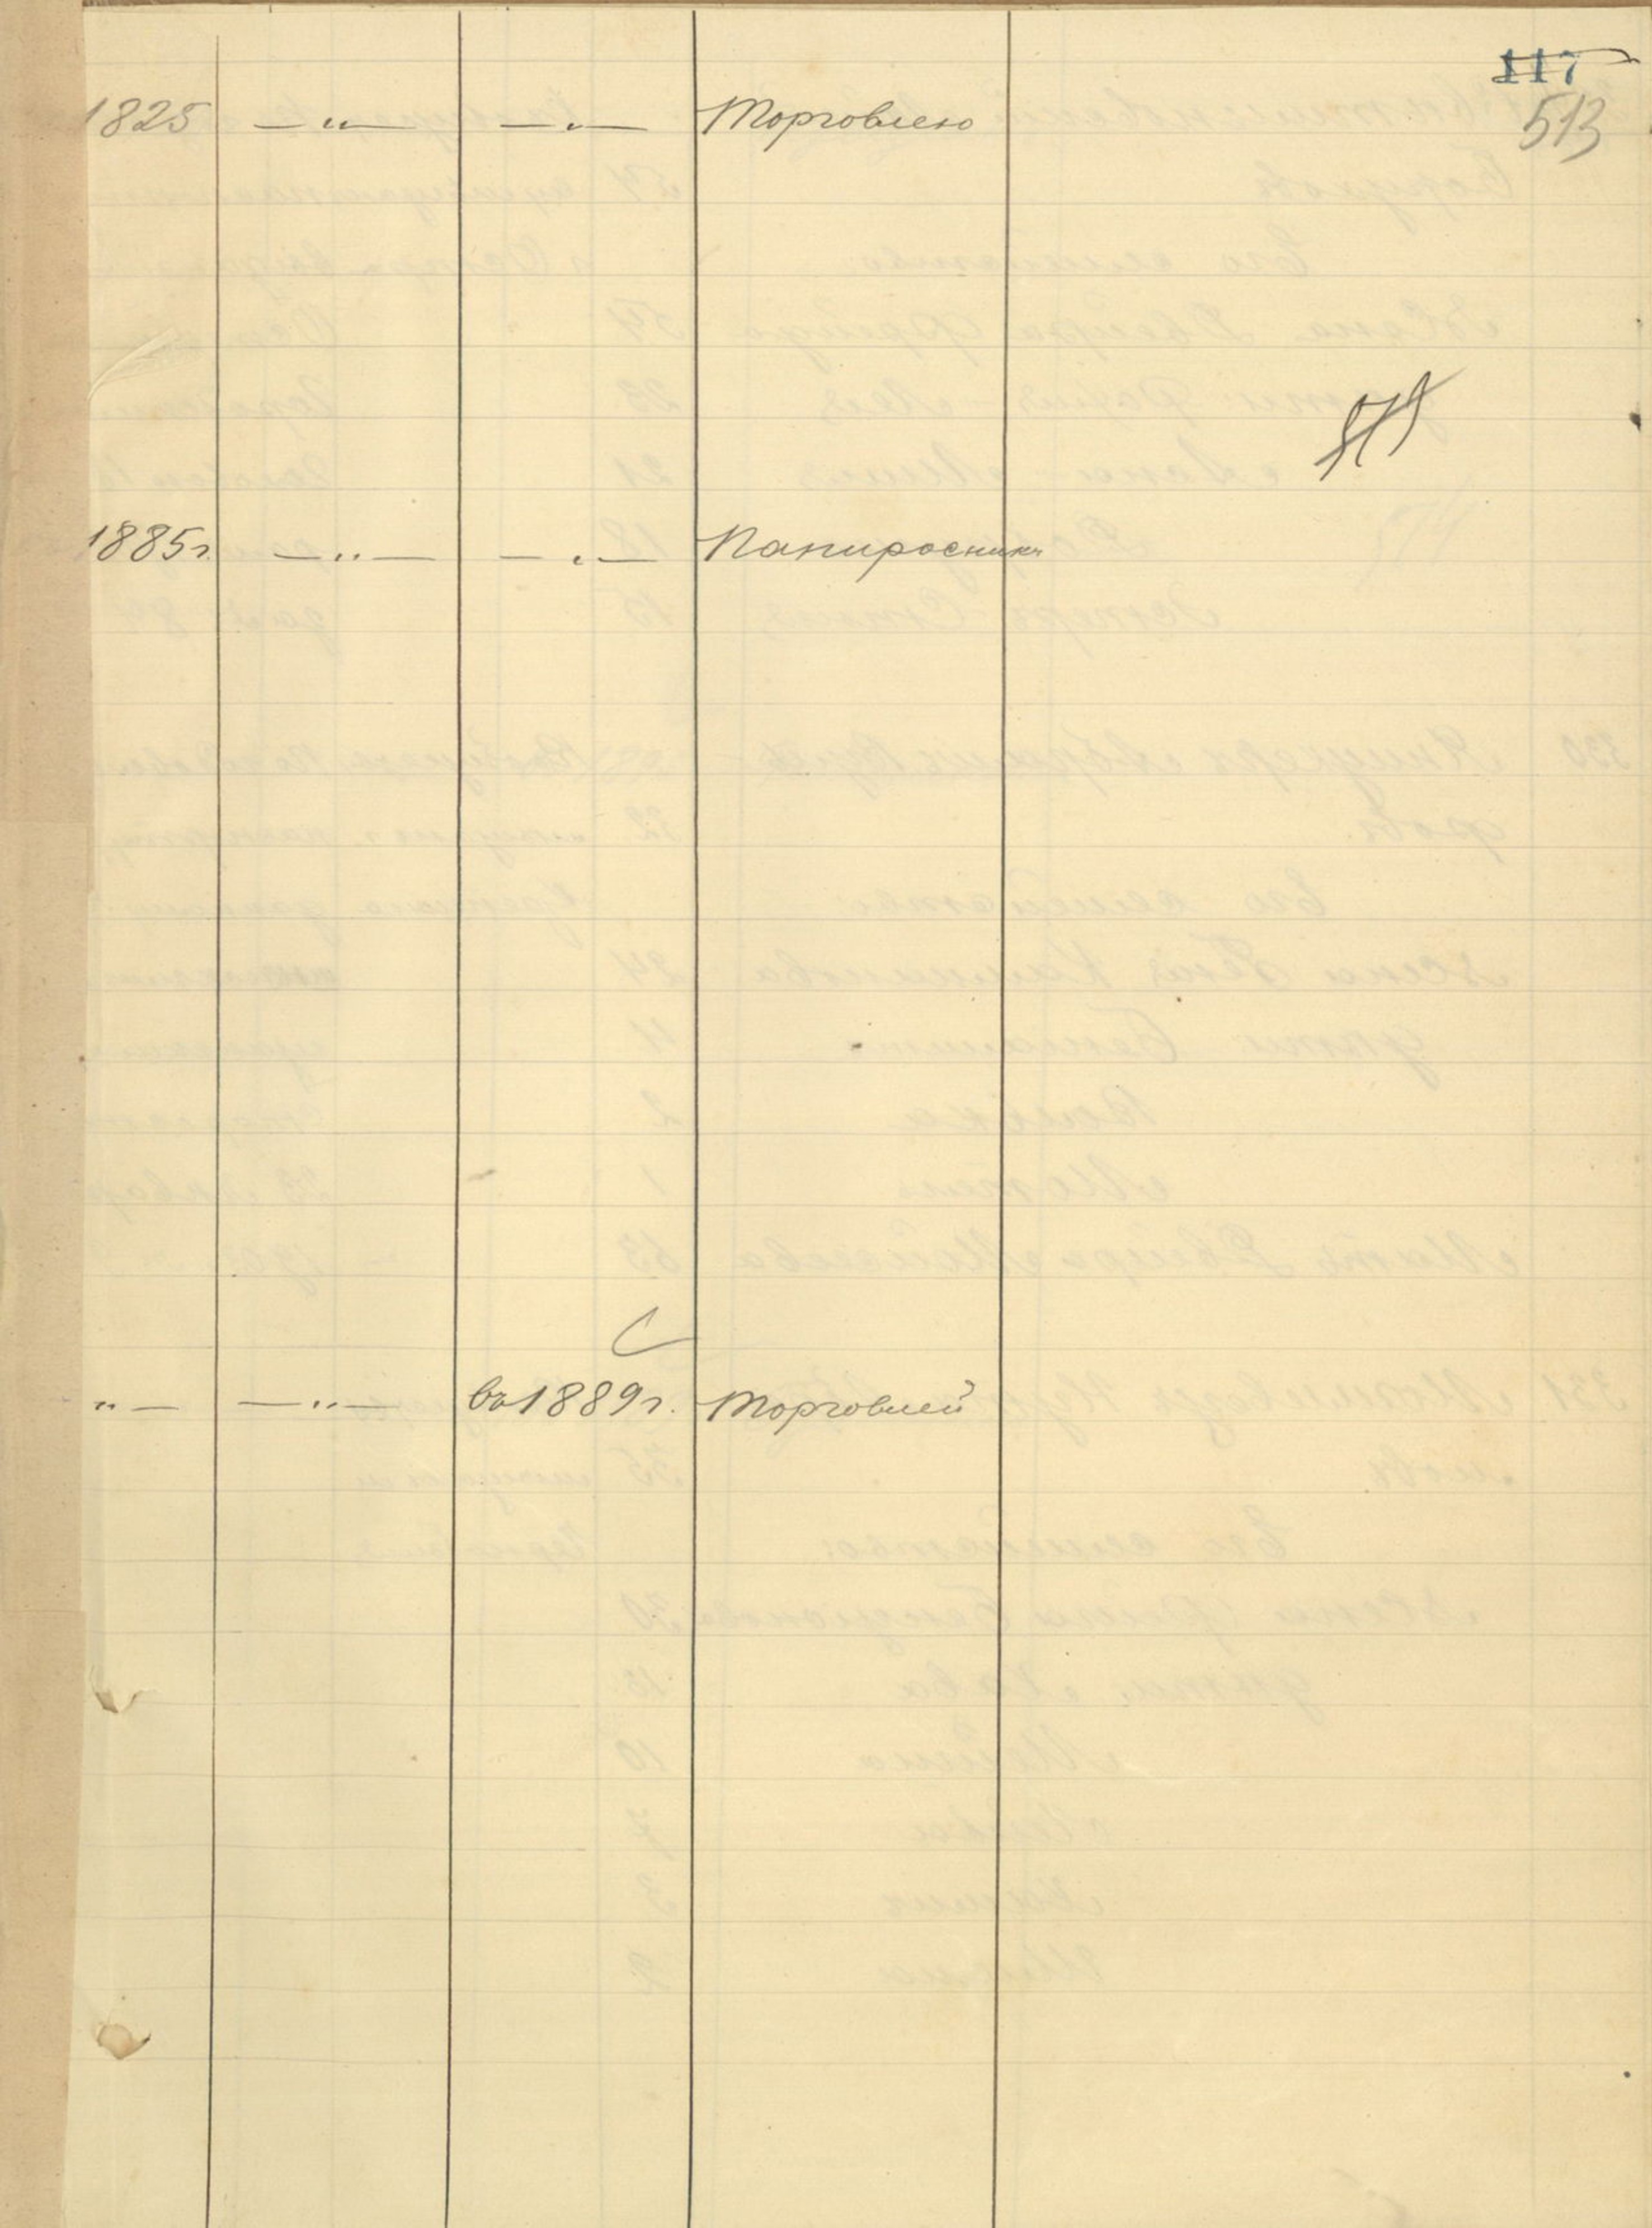 117
513
1825 — " — — " — Торговлею
1885г. — " — — " — Папиросникъ
" — — " — въ 1889г. Торговлей